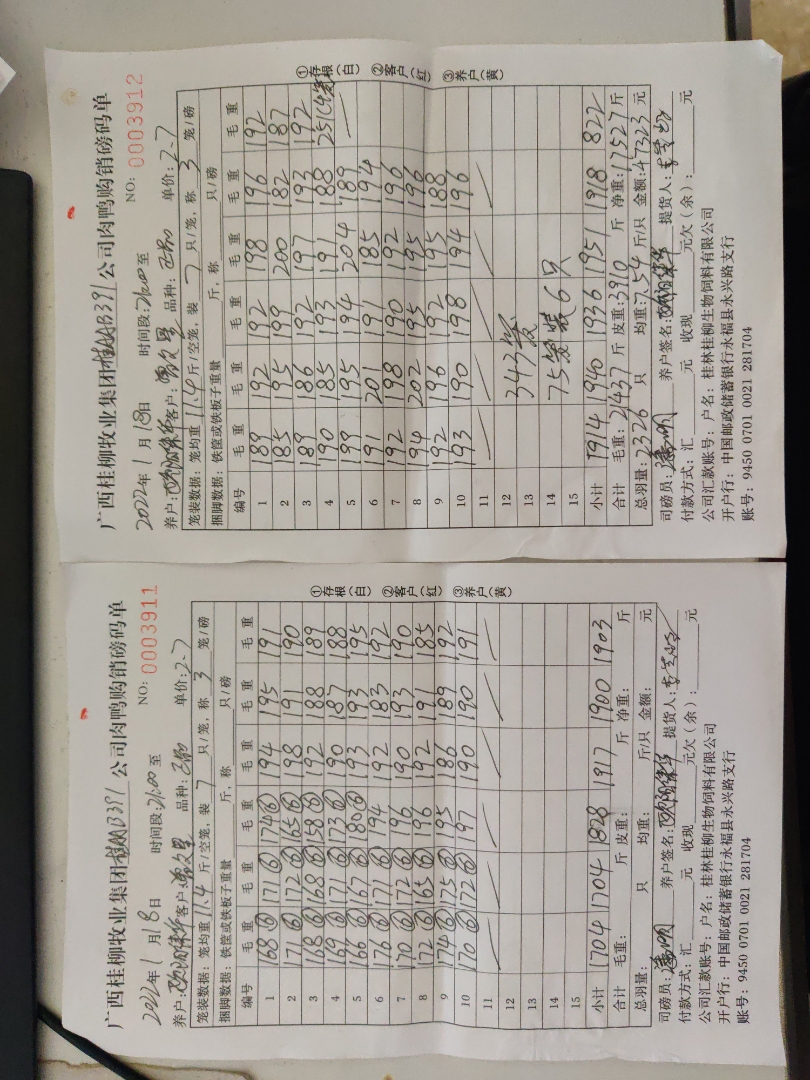 广西桂柳牧业集团桂柳B391公司肉鸭购销磅码单
NO: 0003911
2022年1月18日 时间段:21:00至
养户: 客户: 品种: 单价:2.7
笼装数据: 笼均重11.4斤/空笼, 装7只/笼, 称3笼/磅
捆脚数据: 铁筐或铁板子重量 斤, 称 只/磅
编号 毛重 毛重 毛重 毛重 毛重 毛重
1 168⑥ 171⑥ 174⑥ 194 195 191
2 171⑥ 172⑥ 165⑥ 198 191 190
3 168⑥ 168⑥ 158⑥ 192 188 189
4 169⑥ 171⑥ 173⑥ 190 187 188
5 166⑥ 167⑥ 180⑥ 193 193 195
6 176⑥ 171⑥ 194 192 183 192
7 170⑥ 172⑥ 196 190 193 190
8 172⑥ 165⑥ 196 192 191 185
9 174⑥ 175⑥ 195 186 189 192
10 170⑥ 172⑥ 197 190 190 191
11
12
13
14
15
小计 1704 1704 1828 1917 1900 1903
合计 毛重: 斤 皮重: 斤 净重: 斤
总羽量: 只 均重: 斤/只 金额: 元
司磅员: 养户签名: 提货人:
付款方式: 汇 元 收现 元欠(余): 元
公司汇款账号: 户名: 桂林桂柳生物饲料有限公司
开户行: 中国邮政储蓄银行永福县永兴路支行
账号: 9450 0701 0021 281704
①存根(白) ②客户(红) ③养户(黄)
广西桂柳牧业集团桂柳B391公司肉鸭购销磅码单
NO: 0003912
2022年1月18日 时间段:21:00至
养户: 客户: 品种: 单价:2.7
笼装数据: 笼均重11.4斤/空笼, 装7只/笼, 称3笼/磅
捆脚数据: 铁筐或铁板子重量 斤, 称 只/磅
编号 毛重 毛重 毛重 毛重 毛重 毛重
1 189 192 192 198 196 192
2 185 195 199 200 182 187
3 189 186 192 197 193 192
4 190 185 193 191 188 251(4笼
5 199 195 194 204 189
6 191 201 191 185 194
7 192 198 190 192 196
8 194 202 195 195 196
9 192 196 192 195 188
10 193 190 198 194 196
11
12
13 343笼
14 75笼装6只
15
小计 1914 1940 1936 1951 1918 822
合计 毛重:21437斤 皮重:3910斤 净重:17527斤
总羽量:2326只 均重:7.54斤/只 金额:47323元
司磅员: 养户签名: 提货人:
付款方式: 汇 元 收现 元欠(余): 元
公司汇款账号: 户名: 桂林桂柳生物饲料有限公司
开户行: 中国邮政储蓄银行永福县永兴路支行
账号: 9450 0701 0021 281704
①存根(白) ②客户(红) ③养户(黄)